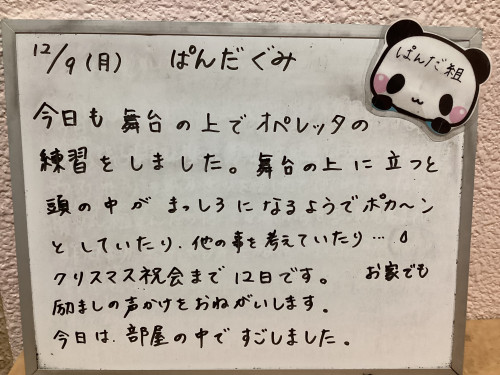 12/9(月) ぱんだぐみ
ぱんだ組
今日も舞台の上でオペレッタの
練習をしました。舞台の上に立つと
頭の中がまっしろになるようでポカ〜ン
としていたり、他の事を考えていたり…
クリスマス祝会まで12日です。 お家でも
励ましの声かけをおねがいします。
今日は、部屋の中ですごしました。